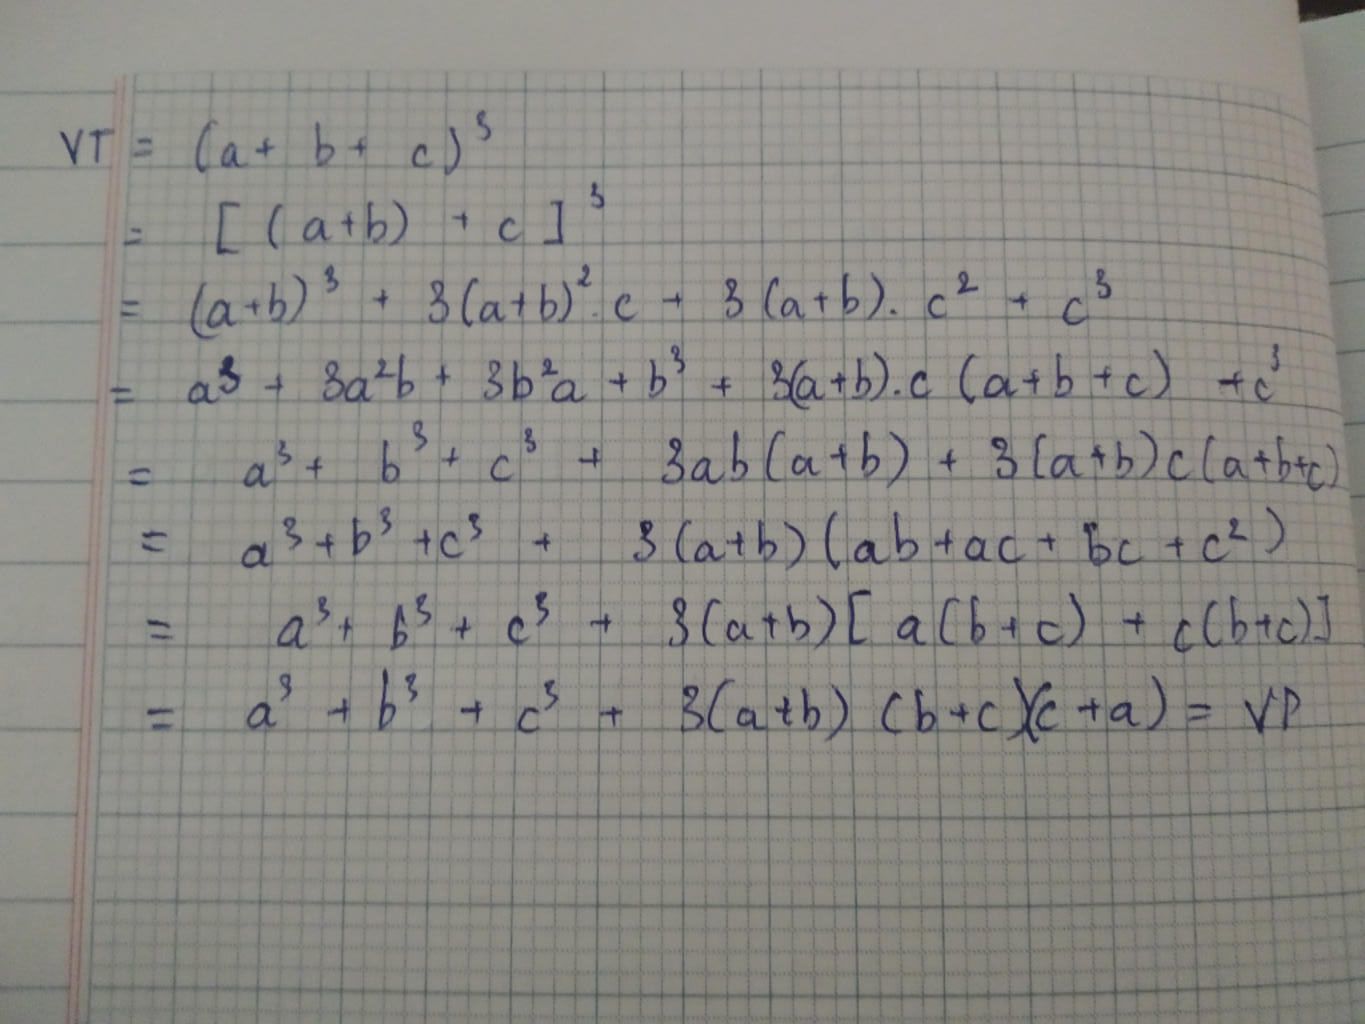 VT = (a + b + c)³
= [(a+b) + c]³
= (a+b)³ + 3(a+b)².c + 3(a+b).c² + c³
= a³ + 3a²b + 3b²a + b³ + 3(a+b).c (a+b+c) + c³
= a³ + b³ + c³ + 3ab(a+b) + 3(a+b)c(a+b+c)
= a³ + b³ + c³ + 3(a+b)(ab+ac+bc+c²)
= a³ + b³ + c³ + 3(a+b)[a(b+c) + c(b+c)]
= a³ + b³ + c³ + 3(a+b)(b+c)(c+a) = VP